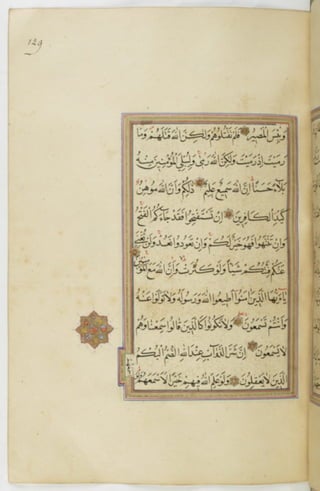 129
وَبِئْسَ الْمَصِيرُ فَلَمْ تَقْتُلُوهُمْ وَلٰكِنَّ اللهَ قَتَلَهُمْ وَمَا
رَمَيْتَ اِذْ رَمَيْتَ وَلٰكِنَّ اللهَ رَمٰى وَلِيُبْلِيَ الْمُؤْمِنِينَ مِنْهُ
بَلَاءً حَسَنًا اِنَّ اللهَ سَمِيعٌ عَلِيمٌ ذٰلِكُمْ وَاَنَّ اللهَ مُوهِنُ
كَيْدِ الْكَافِرِينَ اِنْ تَسْتَفْتِحُوا فَقَدْ جَاءَكُمُ الْفَتْحُ
وَاِنْ تَنْتَهُوا فَهُوَ خَيْرٌ لَكُمْ وَاِنْ تَعُودُوا نَعُدْ وَلَنْ تُغْنِيَ
عَنْكُمْ فِئَتُكُمْ شَيْئًا وَلَوْ كَثُرَتْ وَاَنَّ اللهَ مَعَ الْمُؤْمِنِينَ
يَا اَيُّهَا الَّذِينَ اٰمَنُوا اَطِيعُوا اللهَ وَرَسُولَهُ وَلَا تَوَلَّوْا عَنْهُ
وَاَنْتُمْ تَسْمَعُونَ وَلَا تَكُونُوا كَالَّذِينَ قَالُوا سَمِعْنَا وَهُمْ
لَا يَسْمَعُونَ اِنَّ شَرَّ الدَّوَابِّ عِنْدَ اللهِ الصُّمُّ الْبُكْمُ
الَّذِينَ لَا يَعْقِلُونَ وَلَوْ عَلِمَ اللهُ فِيهِمْ خَيْرًا لَاَسْمَعَهُمْ